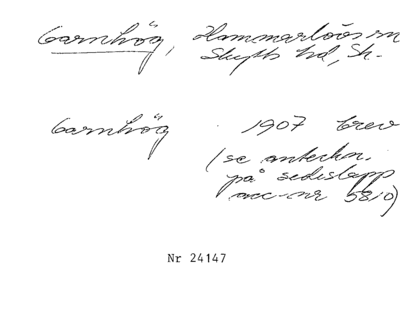 Garnhög, Hammarlövs sn
Skytts hd, Sk.
Garnhög 1907 brev
(se anteckn.
på sedeslapp
acc-nr 5810)
Nr 24147